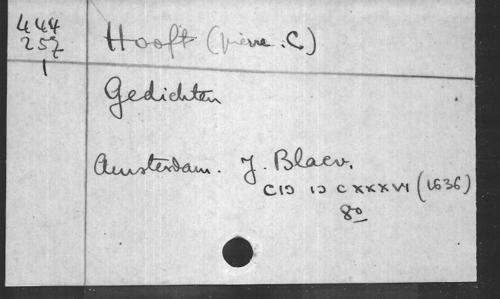 444
257
1
Hooft (pierre. C)
Gedichten
Amsterdam. J. Blaev.
CIↃ IↃ C XXXVI (1636)
8o